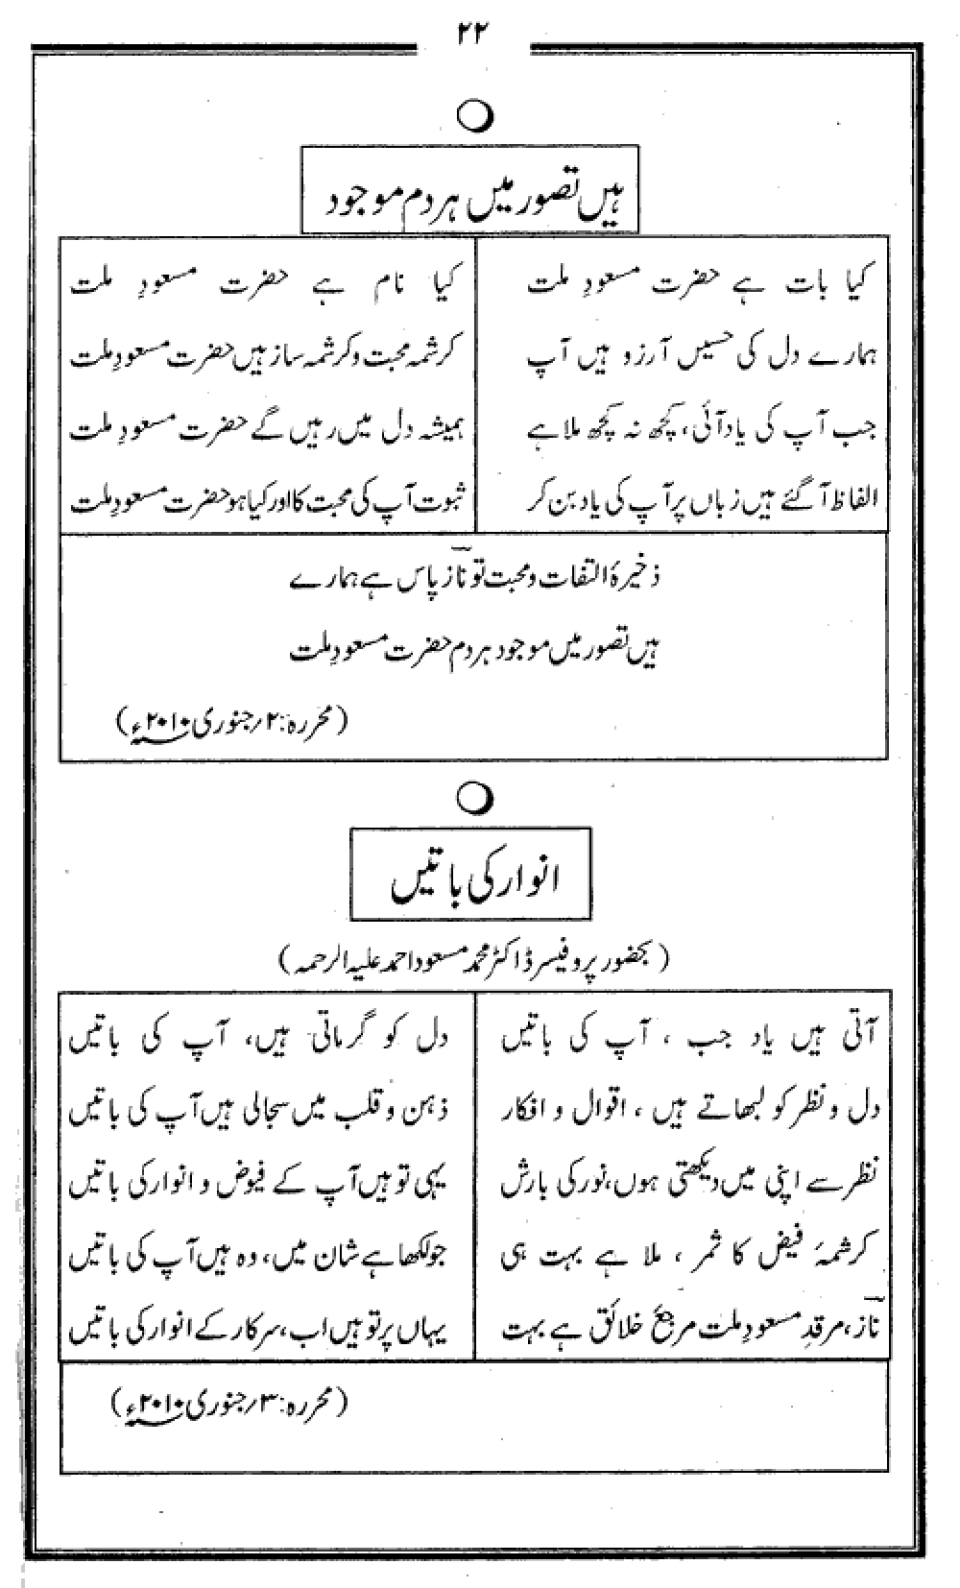 ۲۲
ہیں تصور میں ہر دم موجود
کیا بات ہے حضرت مسعودِ ملت کیا نام ہے حضرت مسعودِ ملت
ہمارے دل کی حسیں آرزو ہیں آپ کرشمہ محبت و کرشمہ ساز ہیں حضرت مسعودِ ملت
جب آپ کی یاد آئی، کچھ نہ کچھ ملا ہے ہمیشہ دل میں رہیں گے حضرت مسعودِ ملت
الفاظ آ گئے ہیں زباں پر آپ کی یاد بن کر ثبوت آپ کی محبت کا اور کیا ہو حضرت مسعودِ ملت
ذخیرۂ التفات و محبت تو نازؔ پاس ہے ہمارے
ہیں تصور میں موجود ہر دم حضرت مسعودِ ملت
(محررہ: ۲/جنوری ۲۰۱۰ء)
انوار کی باتیں
(بحضور پروفیسر ڈاکٹر محمد مسعود احمد علیہ الرحمہ)
آتی ہیں یاد جب، آپ کی باتیں دل کو گرماتی ہیں، آپ کی باتیں
دل و نظر کو لبھاتے ہیں، اقوال و افکار ذہن و قلب میں سجالی ہیں آپ کی باتیں
نظر سے اپنی میں دیکھتی ہوں، نور کی بارش یہی تو ہیں آپ کے فیوض و انوار کی باتیں
کرشمۂ فیض کا ثمر، ملا ہے بہت ہی جو لکھا ہے شان میں، وہ ہیں آپ کی باتیں
نازؔ، مرقدِ مسعودِ ملت مرجع خلائق ہے بہت یہاں پر تو ہیں اب، سرکار کے انوار کی باتیں
(محررہ: ۳/جنوری ۲۰۱۰ء)